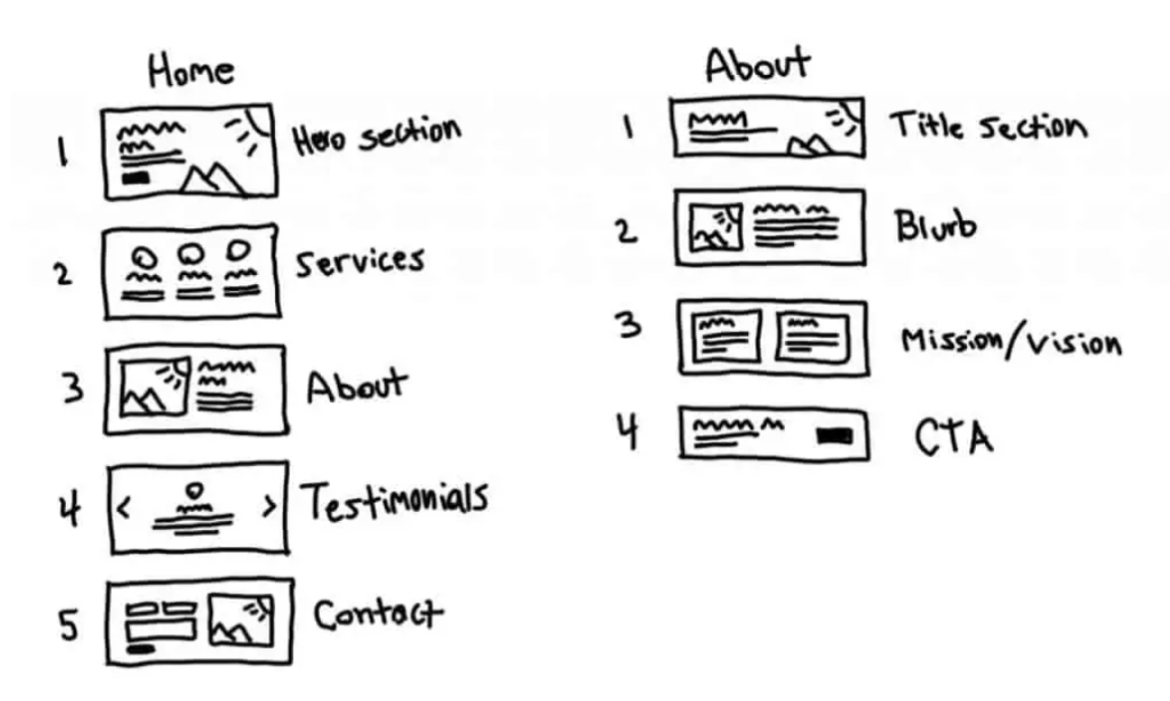 Home
1 Hero section
2 Services
3 About
4 Testimonials
5 Contact
About
1 Title section
2 Blurb
3 Mission/vision
4 CTA